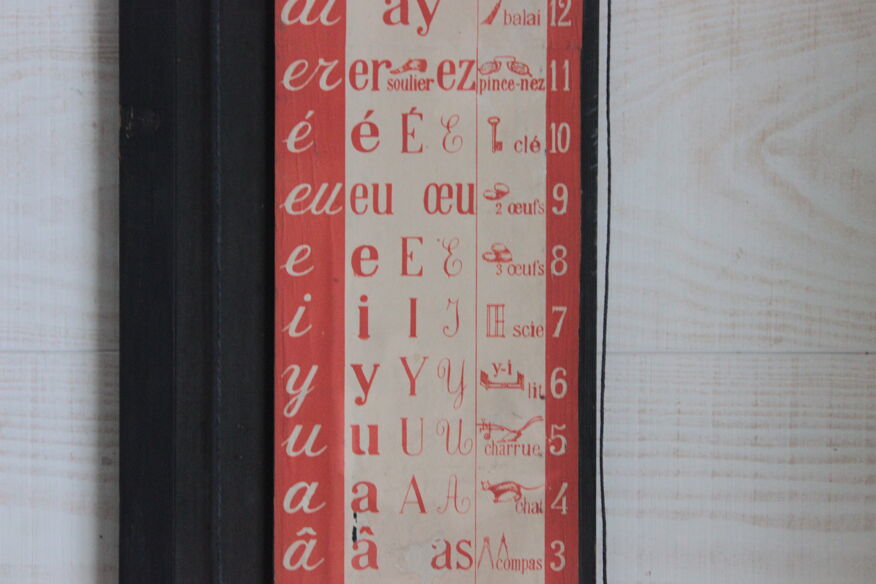 ai ay balai 12
er er soulier ez pince-nez 11
é é É É clé 10
eu eu œu 2 œufs 9
e e E E 3 œufs 8
i i I I scie 7
y y Y Y y-i lit 6
u u U U charrue 5
a a A A chat 4
â â as compas 3